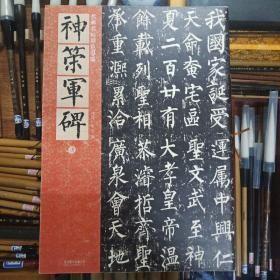 神策軍碑
我國家誕受運属中興仁
天命奄宅區聖文武至神
夏二百廿有大孝皇帝温
餘載列聖相恭濬哲齊聖
承重熙累洽廣泉會天地